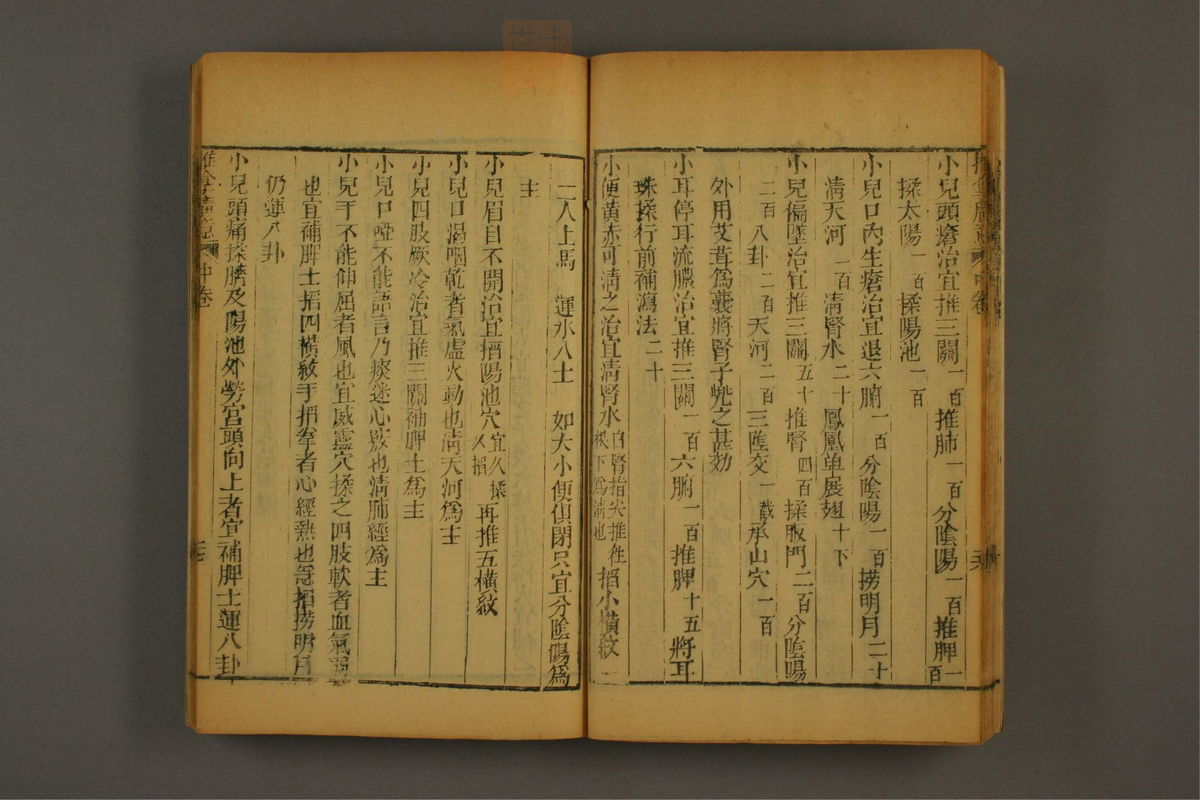 小兒頭瘡治宜推三關一百推肺一百分陰陽一百推脾一百
揉太陽一百揉陽池一百
小兒口內生瘡治宜退六腑一百分陰陽一百撈明月二十
清天河一百清腎水二十鳳凰單展翅十下
小兒偏墜治宜推三關五十推腎四百揉版門二百分陰陽
二百八卦二百天河二百三陰交一截承山穴一百
外用艾茸為囊將腎子兠之甚効
小耳停耳流膿治宜推三關一百六腑一百推脾十五將耳
珠揉行前補瀉法二十
小便黃赤可清之治宜清腎水自腎指尖推徃根下為清也掐小橫紋
二人上馬 運水入土 如大小便俱閉只宜分陰陽為
主
小兒眉目不開治宜掐陽池穴宜久揉久掐再推五橫紋
小兒口渴咽乾者氣虛火動也清天河為主
小兒四肢厥冷治宜推三關補脾土為主
小兒口啞不能語言乃痰迷心竅也清肺經為主
小兒手不能伸屈者風也宜威靈穴揉之四肢軟者血氣弱
也宜補脾土掐四橫紋手搯拳者心經熱也急掐撈明月
仍運八卦
小兒頭痛揉臍及陽池外勞宮頭向上者宜補脾土運八卦
中卷